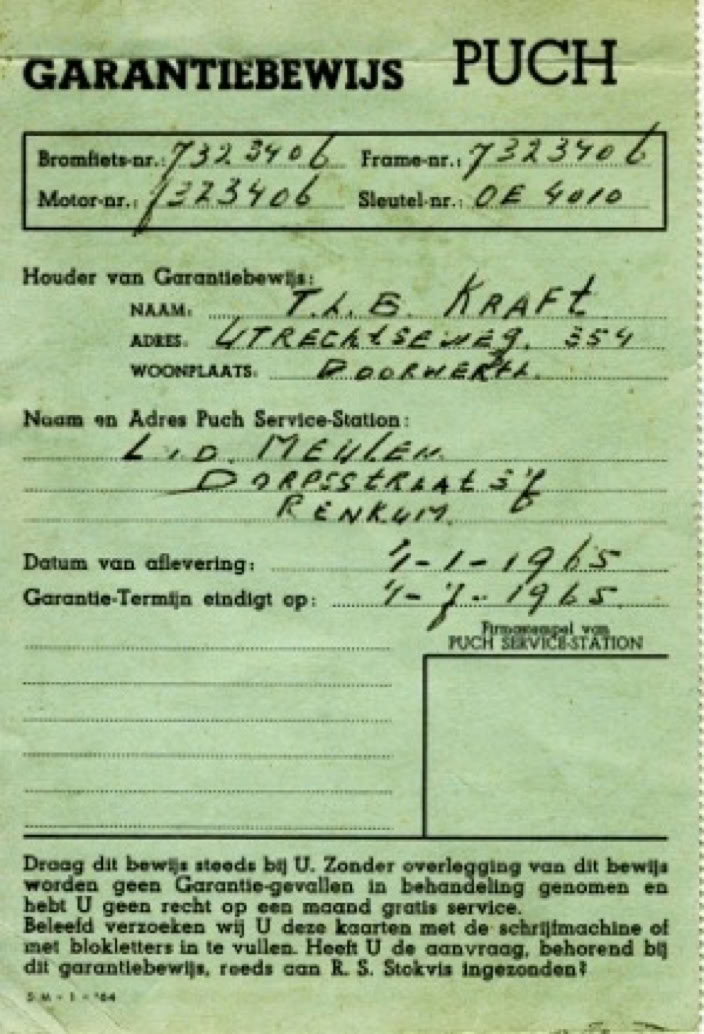 GARANTIEBEWIJS PUCH
Bromfiets-nr.: 7323406 Frame-nr.: 7323406
Motor-nr.: 7323406 Sleutel-nr.: OE 4010
Houder van Garantiebewijs:
NAAM: T.L.B. KRAFT
ADRES: UTRECHTSEWEG. 354
WOONPLAATS: DOORWERTH.
Naam en Adres Puch Service-Station:
L.v.D. MEULEN
DORPSSTRAAT 37
RENKUM.
Datum van aflevering: 1-1-1965
Garantie-Termijn eindigt op: 1-7-1965.
Firmastempel van
PUCH SERVICE-STATION
Draag dit bewijs steeds bij U. Zonder overlegging van dit bewijs
worden geen Garantie-gevallen in behandeling genomen en
hebt U geen recht op een maand gratis service.
Beleefd verzoeken wij U deze kaarten met de schrijfmachine of
met blokletters in te vullen. Heeft U de aanvraag, behorend bij
dit garantiebewijs, reeds aan R. S. Stokvis ingezonden?
5 M - 1 - '64